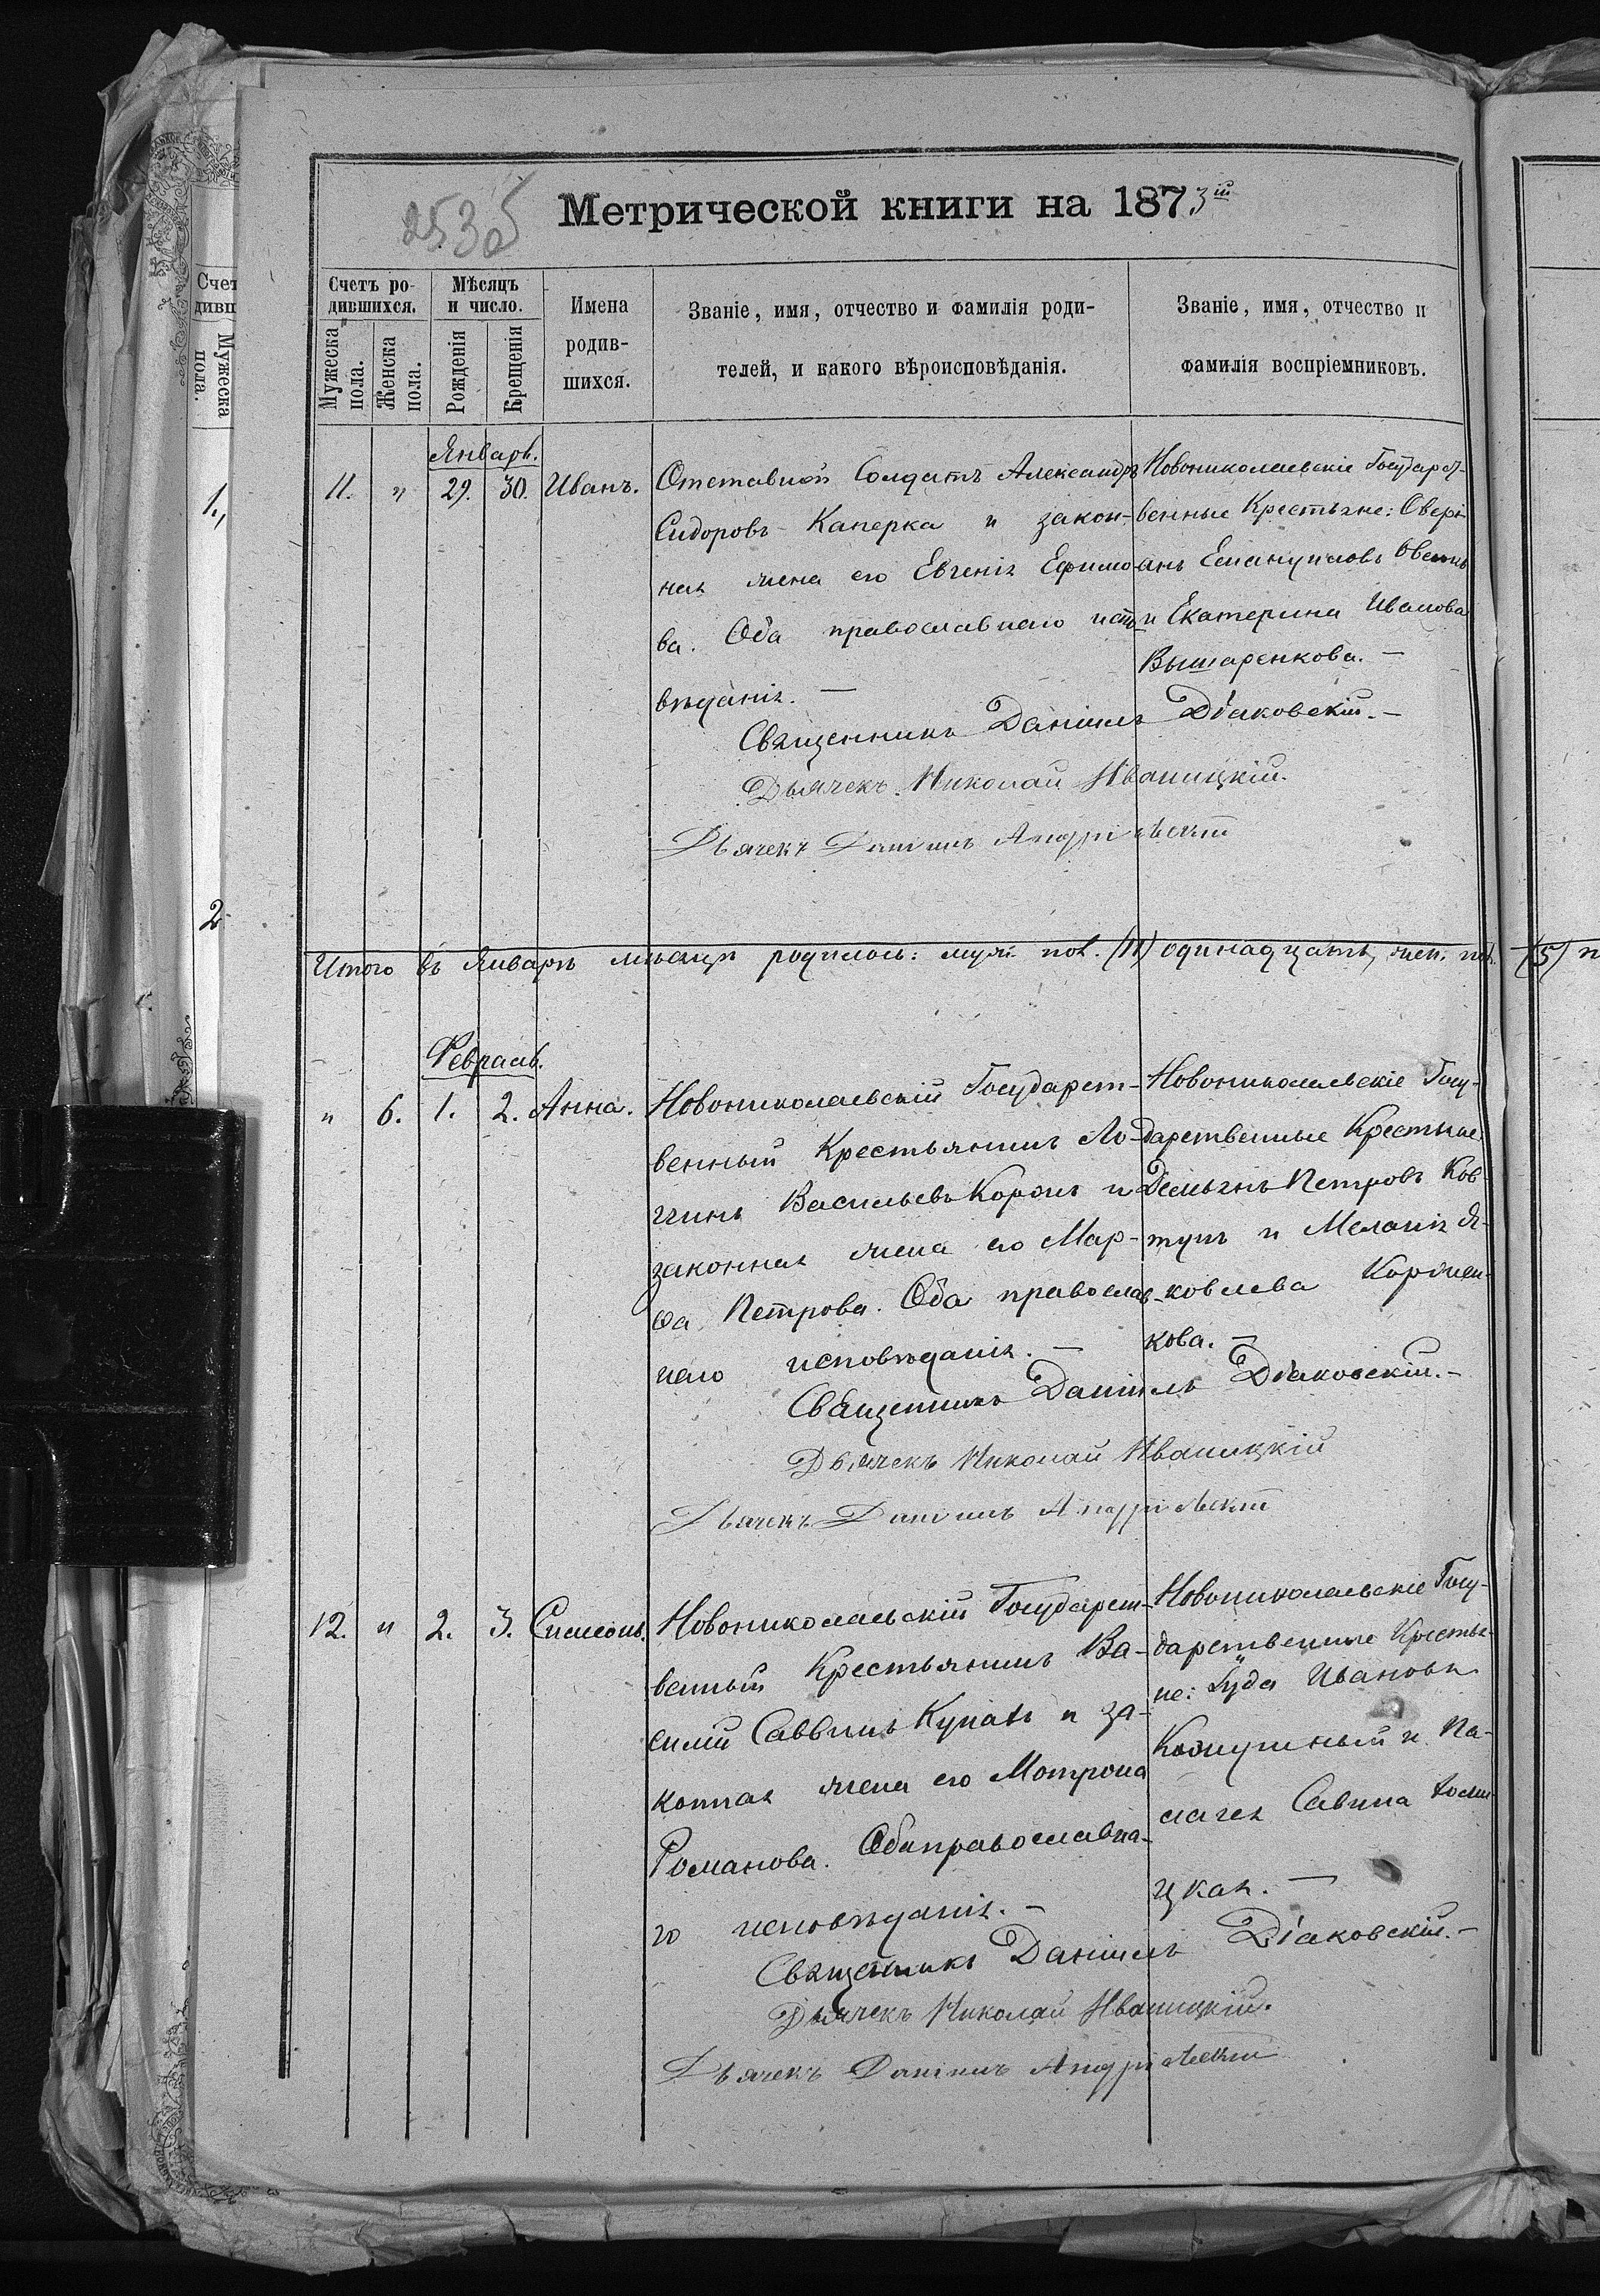 253об
Метрической книги на 1873ій
Счетъ родившихся.
Мѣсяцъ и число.
Мужеска пола.
Женска пола.
Рожденія
Крещенія
Имена родившихся.
Званіе, имя, отчество и фамилія родителей, и какого вѣроисповѣданія.
Званіе, имя, отчество и фамилія воспріемниковъ.
Январь.
11. " 29. 30. Иванъ.
Отставной Солдатъ Александръ
Сидоровъ Каперка и закон-
ная жена его Евгенія Ефимо-
ва. Оба православнаго испо-
вѣданія. —
Новониколаевскіе Государст-
венные Крестьяне: Аверк-
анъ Емануиловъ
и Екатерина Иванова
Вышаренкова. —
Священникъ Даніилъ Діаковскій. —
Дьячекъ Николай Иваницкій.
Дьячекъ Даніилъ Андріевскій
Итого въ Январѣ мѣсяцѣ родилось: муж. пол. (11) одинадцать, жен. пол. (5) п
Февраль.
" 6. 1. 2. Анна.
Новониколаевскій Государст-
венный Крестьянинъ Ло-
гинъ Васильевъ Коржъ и
законная жена его Мар-
фа Петрова. Оба православ-
наго исповѣданія. —
Новониколаевскіе Госу-
дарственные Крестьяне:
Демьянъ Петровъ Ков-
тунъ и Меланія Я-
ковлева Коржен-
кова. —
Священникъ Даніилъ Діаковскій. —
Дьячекъ Николай Иваницкій
Дьячекъ Даніилъ Андріевскій
12. " 2. 3. Симеонъ.
Новониколаевскій Государст-
венный Крестьянинъ Ва-
силій Саввинъ Купатъ и за-
конная жена его Мотрона
Романова. Оба православна-
го исповѣданія. —
Новониколаевскіе Госу-
дарственные Крестья-
не: Іуда Ивановъ
Кожушный и Па-
лагея Савина
цкая. —
Священникъ Даніилъ Діаковскій. —
Дьячекъ Николай Иваницкій.
Дьячекъ Даніилъ Андріевскій
1.,
2